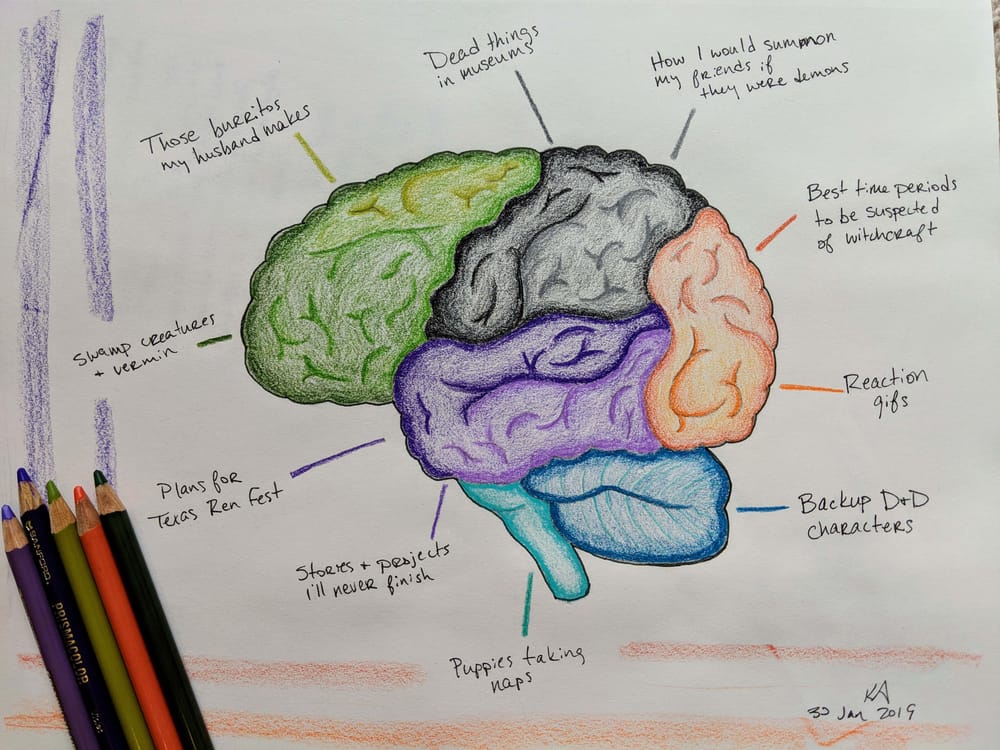 Dead things
in museums
How I would summon
my friends if
they were demons
Those burritos
my husband makes
Best time periods
to be suspected
of witchcraft
Swamp creatures
+ vermin
Reaction
gifs
Plans for
Texas Ren Fest
Backup D+D
characters
Stories + projects
i'll never finish
Puppies taking
naps
PRISMACOLOR
KA
30 Jan 2019